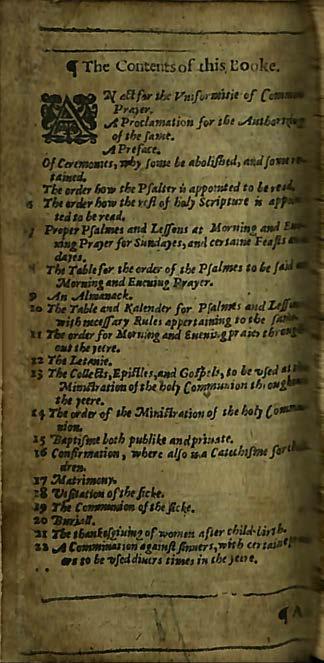 ¶ The Contents of this Booke.
AN act for the Vniformitie of Common
Prayer.
A Proclamation for the Authorizing
of the same.
A Preface.
Of Ceremonies, why some be abolished, and some re-
tained.
The order how the Psalter is appointed to be read.
6 The order how the rest of holy Scripture is appoin
ted to be read.
7 Proper Psalmes and Lessons at Morning and Eue
ning Prayer for Sundayes, and certaine Feasts and
dayes.
8 The Table for the order of the Psalmes to be said at
Morning and Euening Prayer.
9 An Almanack.
10 The Table and Kalender for Psalmes and Lessons
with necessary Rules appertaining to the same.
11 The order for Morning and Euening praier through
out the yeere.
12 The Letanie.
13 The Collects, Epistles, and Gospels, to be vsed at the
Ministration of the holy Communion through
the yeere.
14 The order of the Ministration of the holy Commu
nion.
15 Baptisme both publike and priuate.
16 Confirmation, where also is a Catechisme for
dren.
17 Matrimony.
18 Visitation of the sicke.
19 The Communion of the sicke.
20 Buriall.
21 The thanksgiuing of women after child-birth.
22 A Commination against sinners, with certaine
ers to be vsed diuers times in the yeere.
¶ A